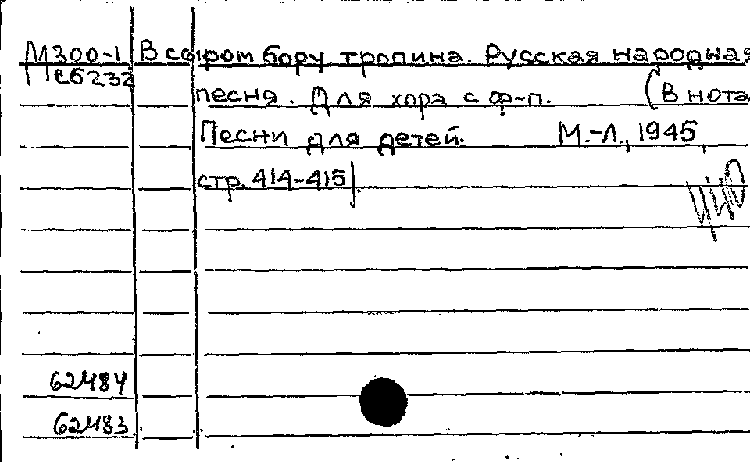 М300-1 В сыром бору тропина. Русская народная
Пс6232 песня. Для хора с ф-п. (В нота
Песни для детей. М.-Л., 1945,
стр. 414-415)
62484
62483